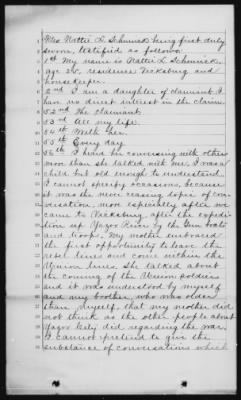 Miss Hattie L. Schunick being first duly
sworn, testified as follows.
1st My name is Hattie L. Schunick
age 25, residence Vicksburg and
housekeeper.
2nd I am a daughter of claimant. I
have no direct interest in the claim.
52nd The claimant
53rd All my life
54th With her.
55th Every day
56th I have her conversing with others
more than she talked with me, I was a
child but old enough to understand.
I cannot specify occasions, because
it was the never ceasing topic of con-
versation, more especially after we
came to Vicksburg, after the expedi-
tion up Yazoo River by the Gun boats
and troops, My mother embraced
the first opportunity to leave the
rebel lines and come within the
Union lines. She talked about
the coming of the Union soldiers
and it was understood by myself
and my brother, who was older
than myself, that my mother did
not think as the other people about
Yazoo City did regarding the war.
I cannot pretend to give the
substance of conversations which